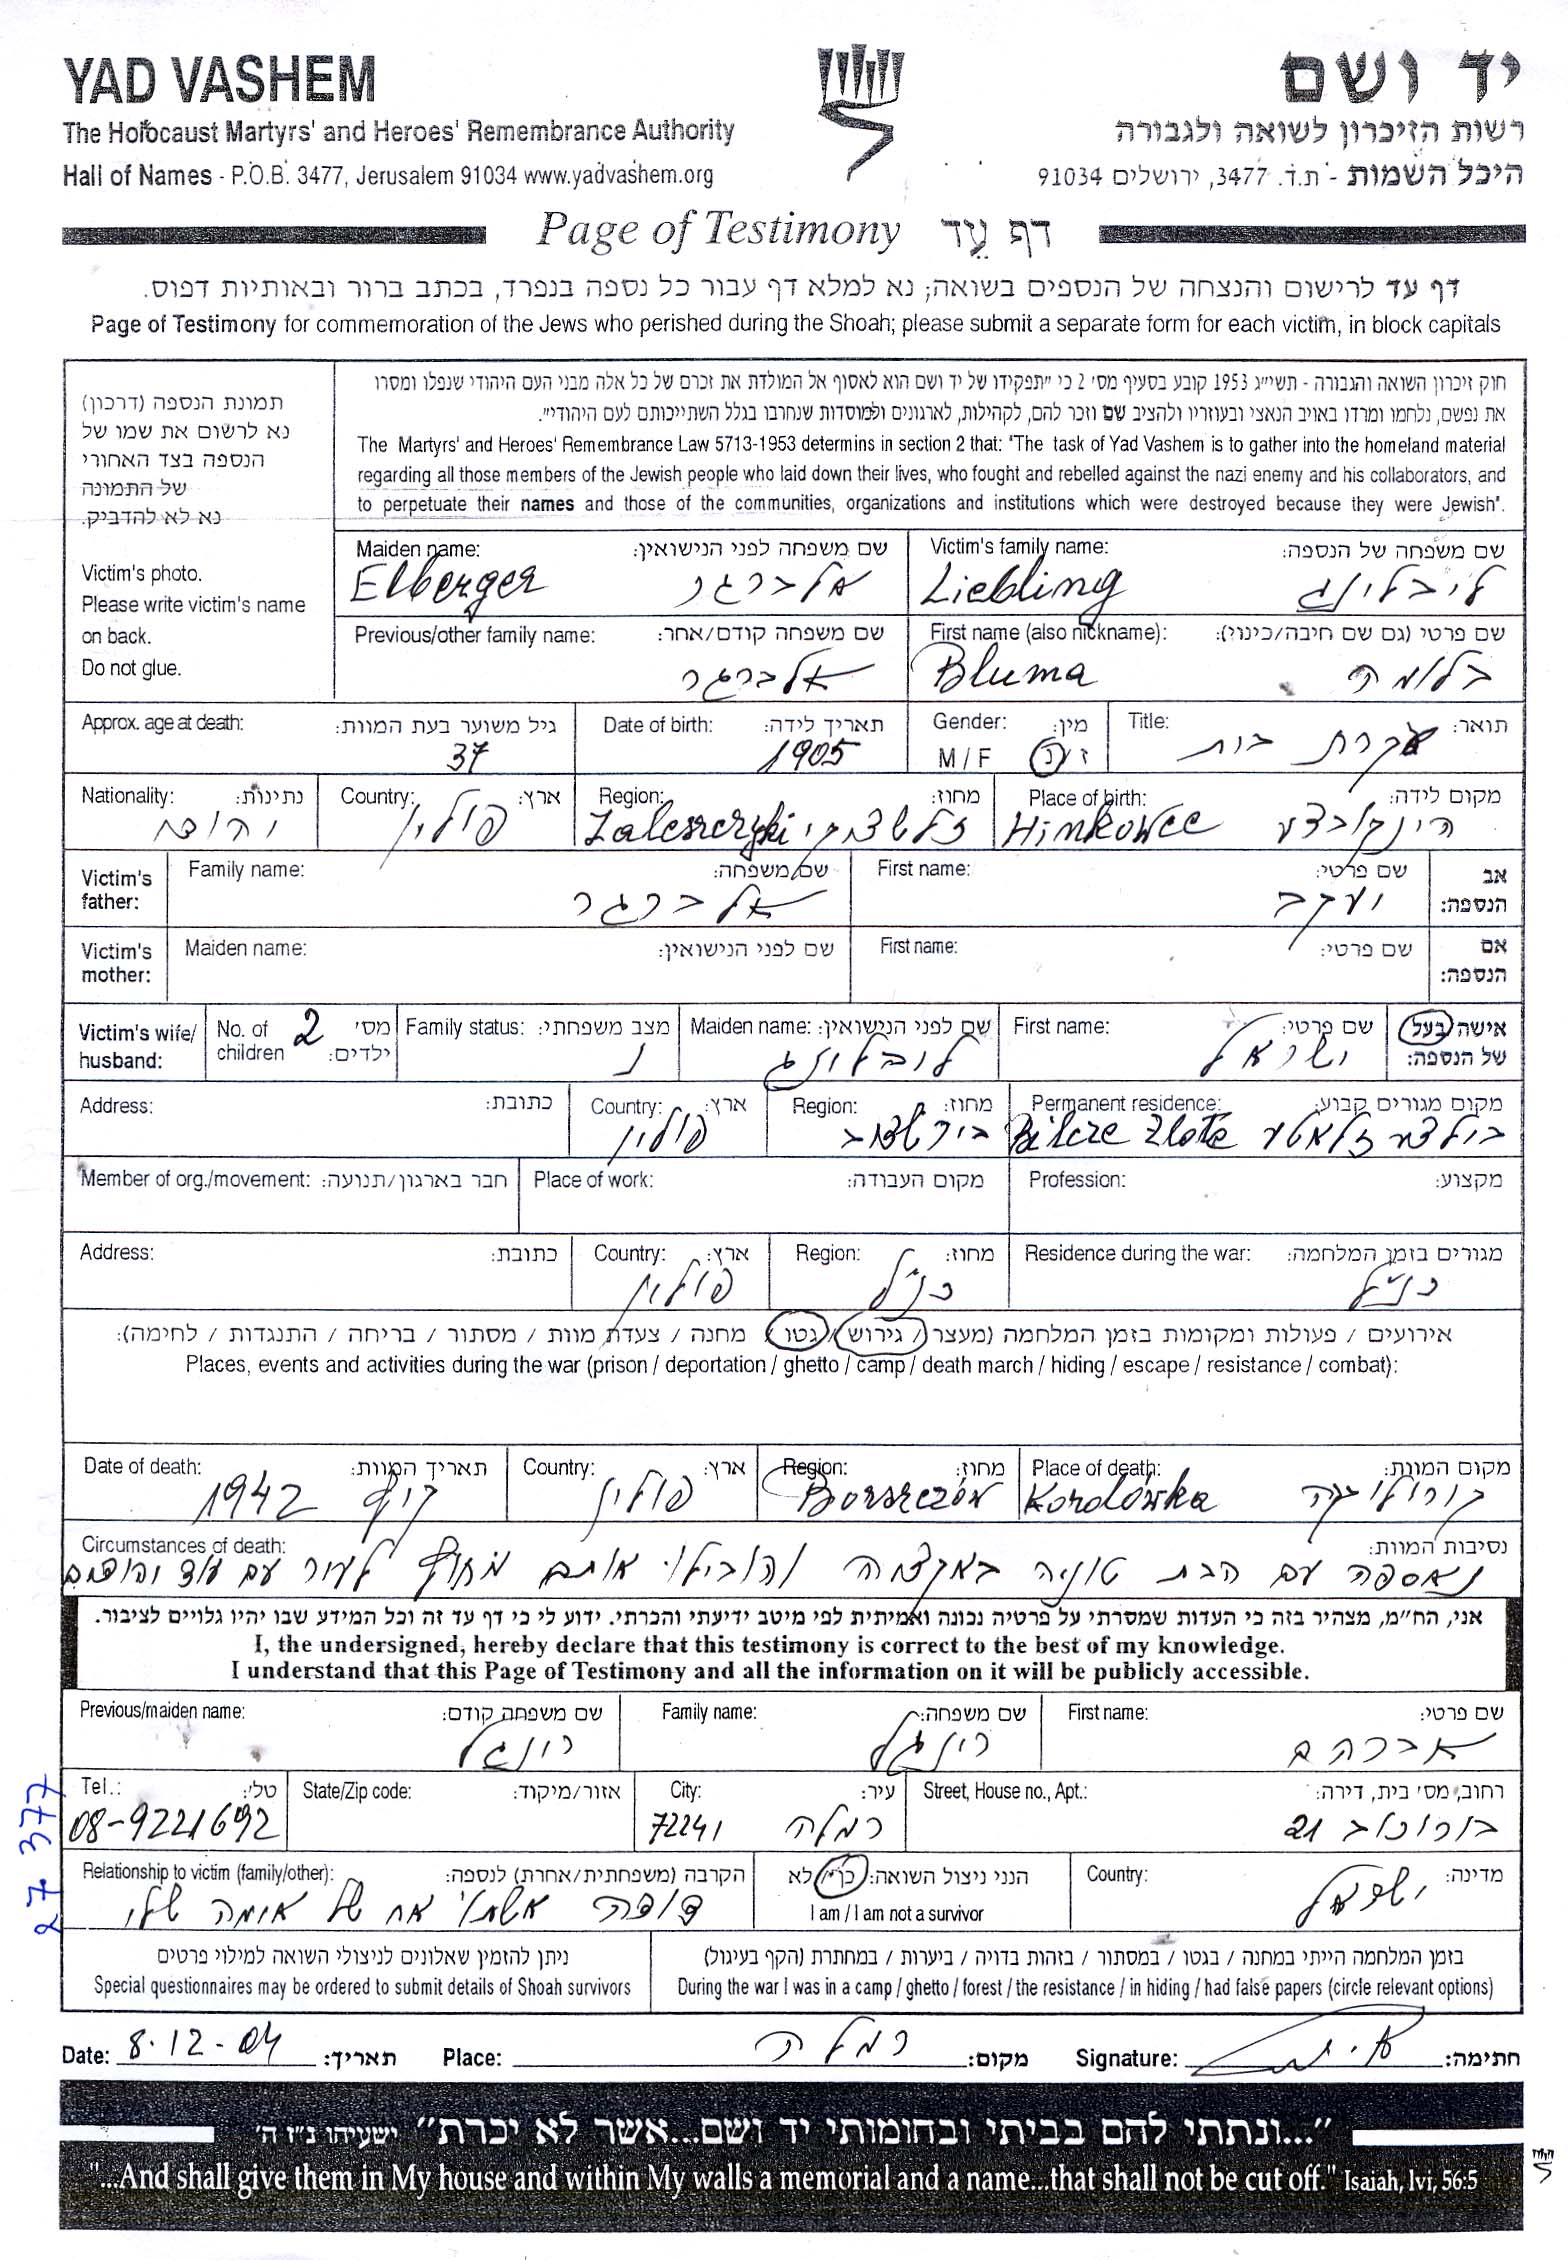 YAD VASHEM
יד ושם
The Holocaust Martyrs' and Heroes' Remembrance Authority
רשות הזיכרון לשואה ולגבורה
Hall of Names - P.O.B. 3477, Jerusalem 91034 www.yadvashem.org
היכל השמות - ת.ד. 3477, ירושלים 91034
Page of Testimony דף עֵד
דף עד לרישום והנצחה של הנספים בשואה; נא למלא דף עבור כל נספה בנפרד, בכתב ברור ובאותיות דפוס.
Page of Testimony for commemoration of the Jews who perished during the Shoah; please submit a separate form for each victim, in block capitals
תמונת הנספה (דרכון)
נא לרשום את שמו של
הנספה בצד האחורי
של התמונה
נא לא להדביק.
Victim's photo.
Please write victim's name
on back.
Do not glue.
חוק זיכרון השואה והגבורה - תשי״ג 1953 קובע בסעיף מס׳ 2 כי ״תפקידו של יד ושם הוא לאסוף אל המולדת את זכרם של כל אלה מבני העם היהודי שנפלו ומסרו
את נפשם, נלחמו ומרדו באויב הנאצי ובעוזריו ולהציב שם וזכר להם, לקהילות, לארגונים ולמוסדות שנחרבו בגלל השתייכותם לעם היהודי״.
The Martyrs' and Heroes' Remembrance Law 5713-1953 determins in section 2 that: "The task of Yad Vashem is to gather into the homeland material
regarding all those members of the Jewish people who laid down their lives, who fought and rebelled against the nazi enemy and his collaborators, and
to perpetuate their names and those of the communities, organizations and institutions which were destroyed because they were Jewish".
Victim's family name: שם משפחה של הנספה:
Liebling ליבלינג
Maiden name: שם משפחה לפני הנישואין:
Elberger אלברגר
First name (also nickname): שם פרטי (גם שם חיבה/כינוי):
Bluma בלומה
Previous/other family name: שם משפחה קודם/אחר:
אלברגר
Title: תואר:
עקרת בית
Gender: מין:
M / F ז / נ
Date of birth: תאריך לידה:
1905
Approx. age at death: גיל משוער בעת המוות:
37
Place of birth: מקום לידה:
Hinkowce הינקובצע
Region: מחוז:
Zaleszczyki זלשצקי
Country: ארץ:
פולין
Nationality: נתינות:
יהודי
Victim's father: אב הנספה:
First name: שם פרטי:
יעקב
Family name: שם משפחה:
אלברגר
Victim's mother: אם הנספה:
First name: שם פרטי:
Maiden name: שם לפני הנישואין:
Victim's wife/husband: אישה/בעל של הנספה:
First name: שם פרטי:
ישראל
Maiden name: שם לפני הנישואין:
ליבלינג
Family status: מצב משפחתי:
נ
No. of children מס׳ ילדים:
2
Permanent residence: מקום מגורים קבוע:
Bilcze Zlote בילצע זלאטע
Region: מחוז:
בורשצוב
Country: ארץ:
פולין
Address: כתובת:
Profession: מקצוע:
Place of work: מקום העבודה:
Member of org./movement: חבר בארגון/תנועה:
Residence during the war: מגורים בזמן המלחמה:
כנ״ל
Region: מחוז:
כנ״ל
Country: ארץ:
פולין
Address: כתובת:
אירועים / פעולות ומקומות בזמן המלחמה (מעצר / גירוש / גטו / מחנה / צעדת מוות / מסתור / בריחה / התנגדות / לחימה):
Places, events and activities during the war (prison / deportation / ghetto / camp / death march / hiding / escape / resistance / combat):
Place of death: מקום המוות:
Korolówka קורולובקה
Region: מחוז:
Borszczów
Country: ארץ:
פולין
Date of death: תאריך המוות:
קיץ 1942
Circumstances of death: נסיבות המוות:
נאספה עם הבת טוניה באקציה והובילו אותם מחוץ לעיר עם עוד יהודים
אני, הח״מ, מצהיר בזה כי העדות שמסרתי על פרטיה נכונה ואמיתית לפי מיטב ידיעתי והכרתי. ידוע לי כי דף עד זה וכל המידע שבו יהיו גלויים לציבור.
I, the undersigned, hereby declare that this testimony is correct to the best of my knowledge.
I understand that this Page of Testimony and all the information on it will be publicly accessible.
First name: שם פרטי:
אברהם
Family name: שם משפחה:
רינגל
Previous/maiden name: שם משפחה קודם:
רינגל
Street, House no., Apt.: רחוב, מס׳ בית, דירה:
בורוכוב 21
City: עיר:
רמלה 72241
State/Zip code: אזור/מיקוד:
Tel.: טל׳:
08-9221692
27 377
Country: מדינה:
ישראל
הנני ניצול השואה: כן / לא
I am / I am not a survivor
Relationship to victim (family/other): הקרבה (משפחתית/אחרת) לנספה:
דודה אשת אח של אימה שלי
בזמן המלחמה הייתי במחנה / בגטו / במסתור / בזהות בדויה / ביערות / במחתרת (הקף בעיגול)
During the war I was in a camp / ghetto / forest / the resistance / in hiding / had false papers (circle relevant options)
ניתן להזמין שאלונים לניצולי השואה למילוי פרטים
Special questionnaires may be ordered to submit details of Shoah survivors
Date: 8.12-04 תאריך: Place: רמלה מקום: Signature: חתימה:
״...ונתתי להם בביתי ובחומותי יד ושם...אשר לא יכרת״ ישעיהו נ״ו ה׳
"...And shall give them in My house and within My walls a memorial and a name...that shall not be cut off." Isaiah, lvi, 56:5